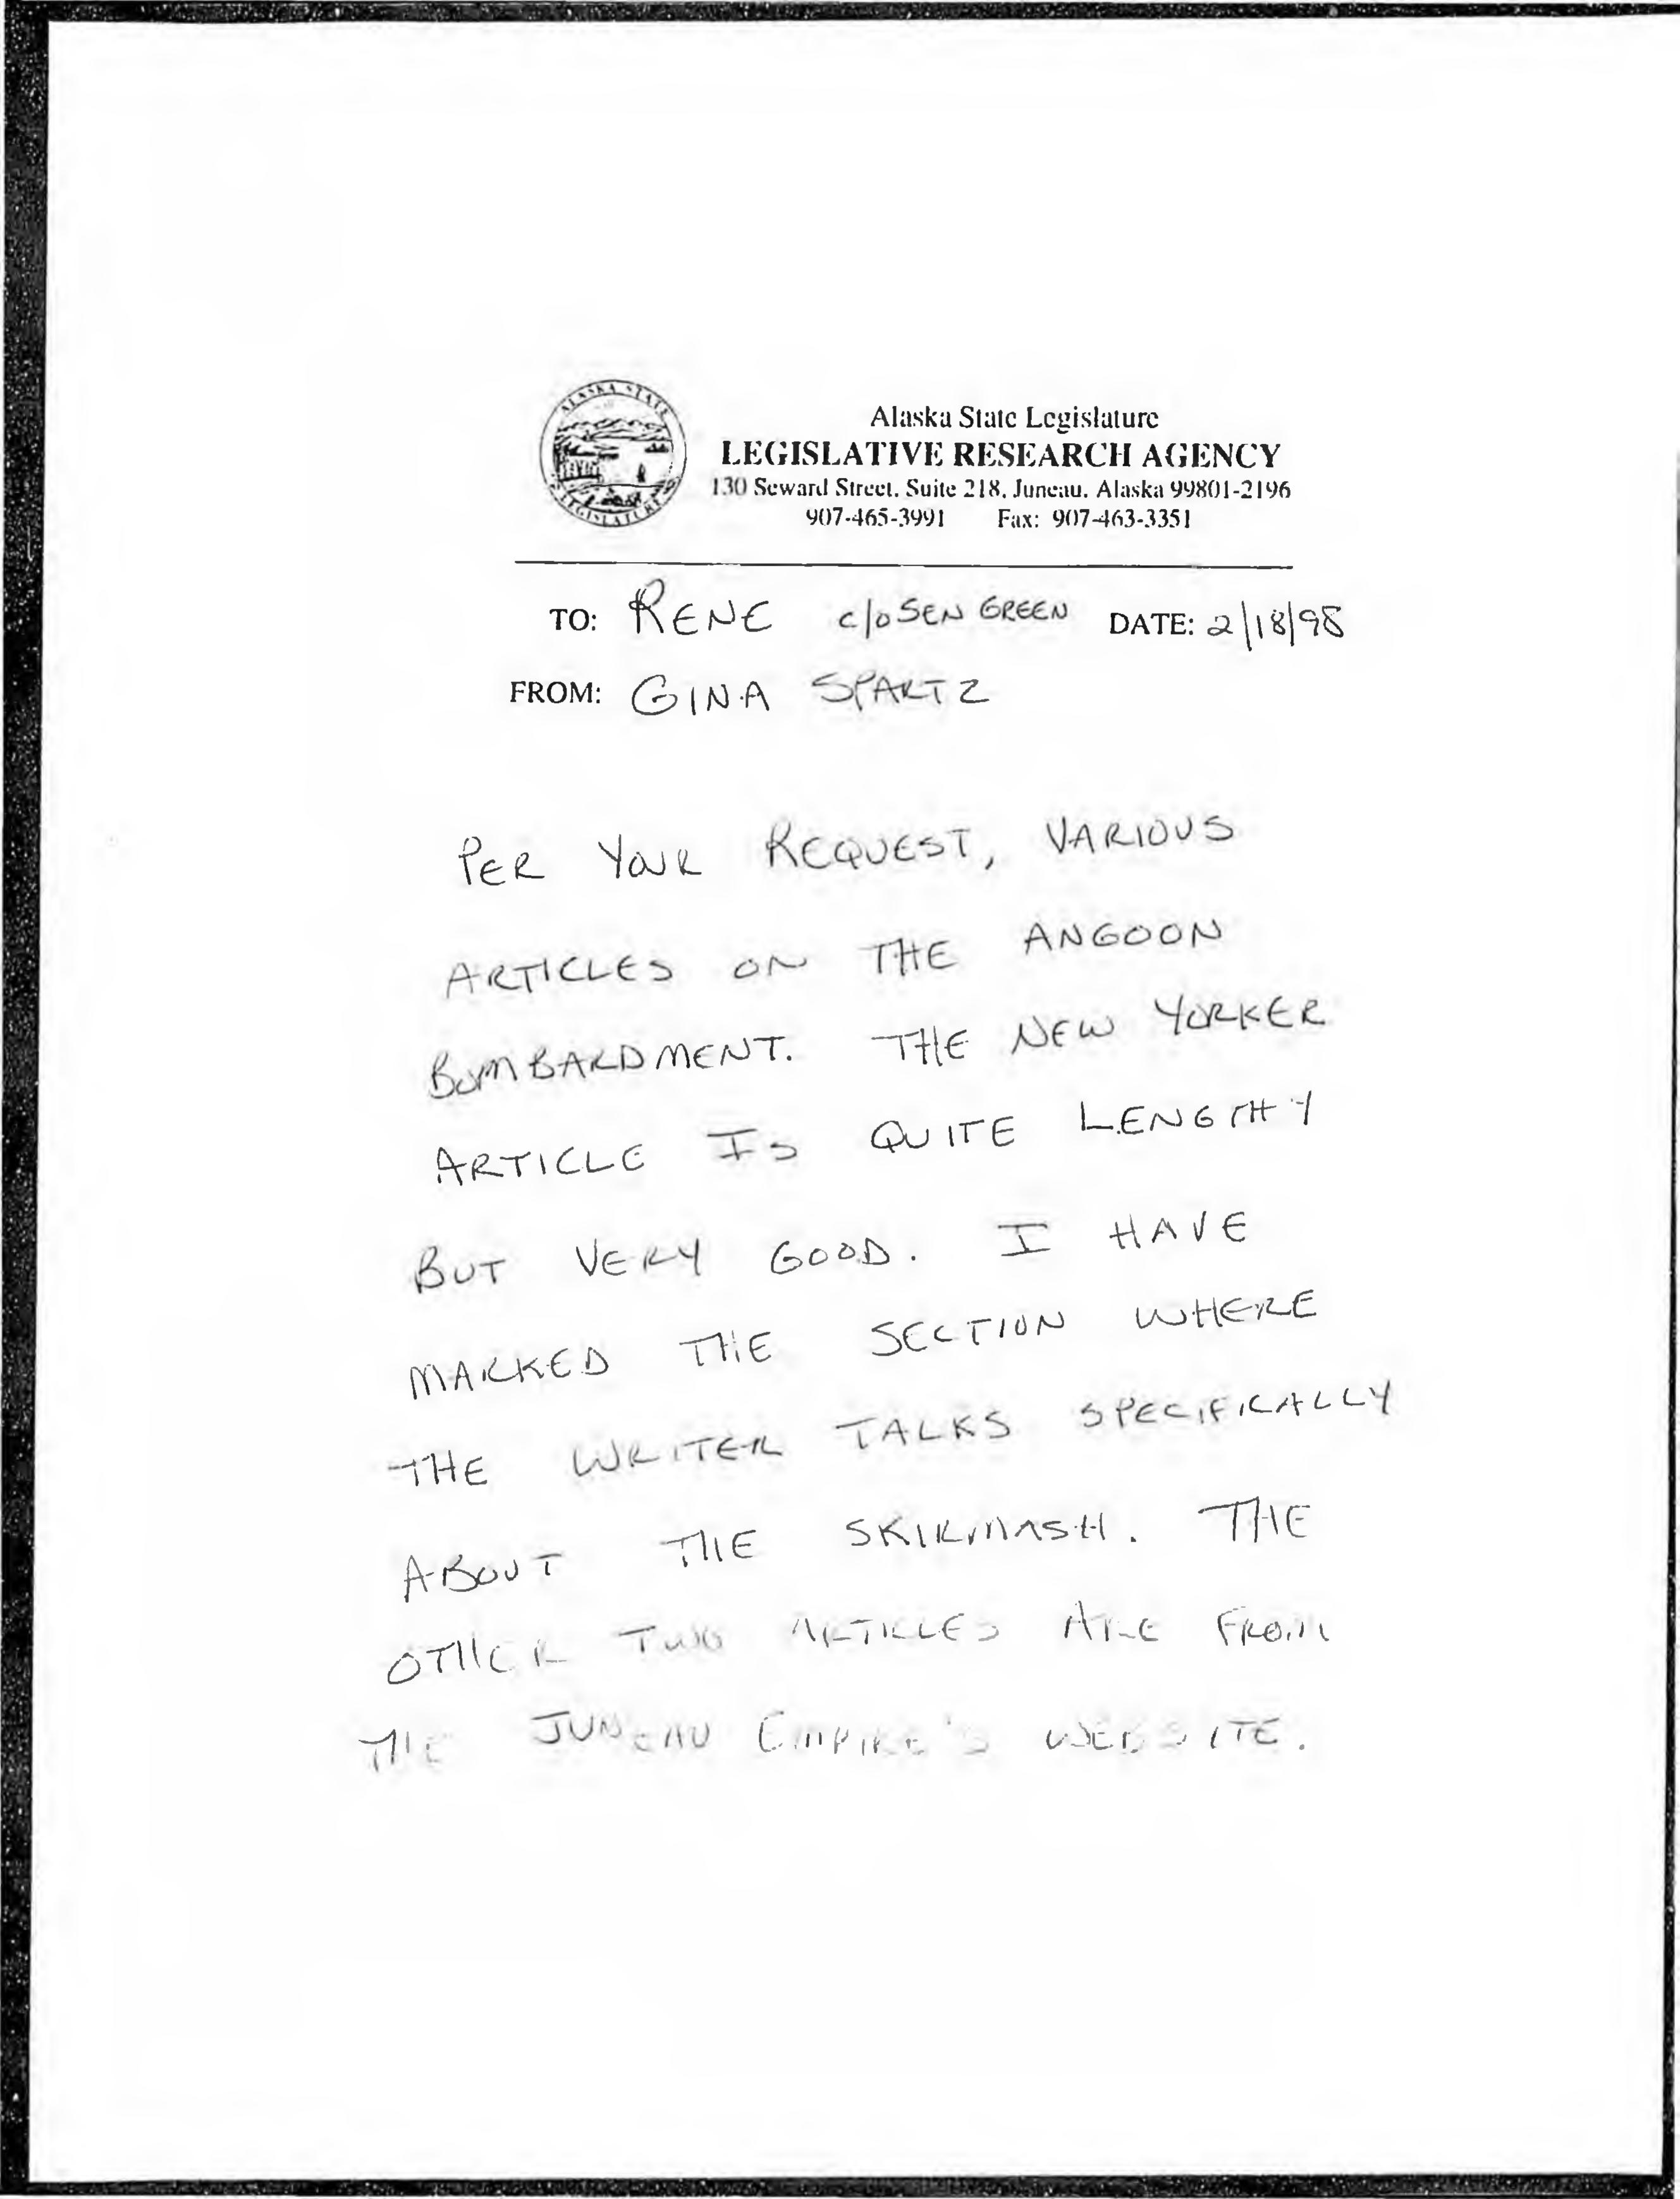 ALASKA STATE
LEGISLATURE
Alaska State Legislature
LEGISLATIVE RESEARCH AGENCY
130 Seward Street, Suite 218, Juneau, Alaska 99801-2196
907-465-3991 Fax: 907-463-3351
TO: RENE c/o SEN GREEN DATE: 2/18/98
FROM: GINA SPARTZ
PER YOUR REQUEST, VARIOUS
ARTICLES ON THE ANGOON
BOMBARDMENT. THE NEW YORKER
ARTICLE IS QUITE LENGTHY
BUT VERY GOOD. I HAVE
MARKED THE SECTION WHERE
THE WRITER TALKS SPECIFICALLY
ABOUT THE SKIRMASH. THE
OTHER TWO ARTICLES ARE FROM
THE JUNEAU EMPIRE'S WEBSITE.